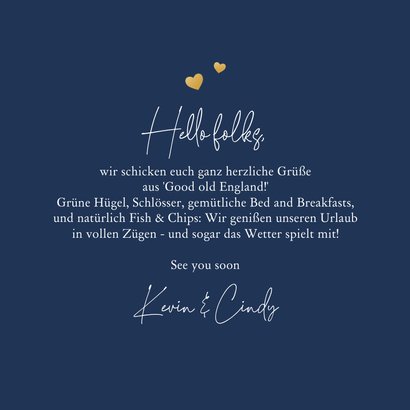 Hello folks,
wir schicken euch ganz herzliche Grüße
aus 'Good old England!'
Grüne Hügel, Schlösser, gemütliche Bed and Breakfasts,
und natürlich Fish & Chips: Wir genißen unseren Urlaub
in vollen Zügen - und sogar das Wetter spielt mit!
See you soon
Kevin & Cindy